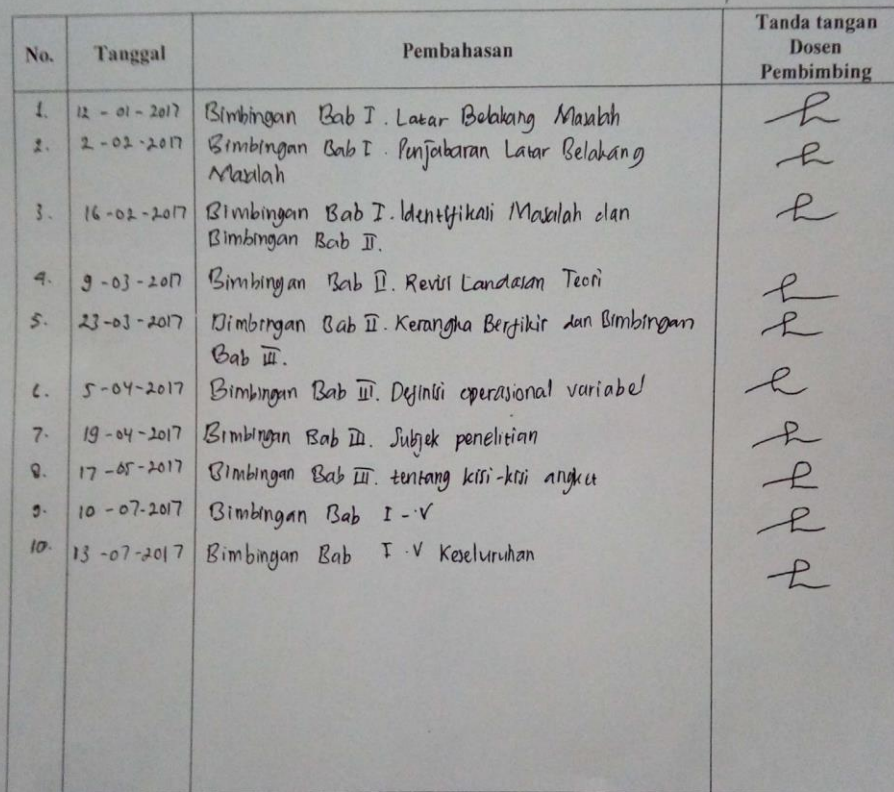 No. Tanggal Pembahasan Tanda tangan
Dosen
Pembimbing
1. 12 - 01 - 2017 Bimbingan Bab I. Latar Belakang Masalah
2. 2 - 02 - 2017 Bimbingan Bab I. Penjabaran Latar Belakang
Masalah
3. 16 - 02 - 2017 Bimbingan Bab I. Identifikasi Masalah dan
Bimbingan Bab II.
4. 9 - 03 - 2017 Bimbingan Bab II. Revisi Landasan Teori
5. 23 - 03 - 2017 Bimbingan Bab II. Kerangka Berfikir dan Bimbingan
Bab III.
6. 5 - 04 - 2017 Bimbingan Bab III. Definisi operasional variabel
7. 19 - 04 - 2017 Bimbingan Bab III. Subjek penelitian
8. 17 - 05 - 2017 Bimbingan Bab III. tentang kisi-kisi angket
9. 10 - 07 - 2017 Bimbingan Bab I - V
10. 13 - 07 - 2017 Bimbingan Bab I - V Keseluruhan